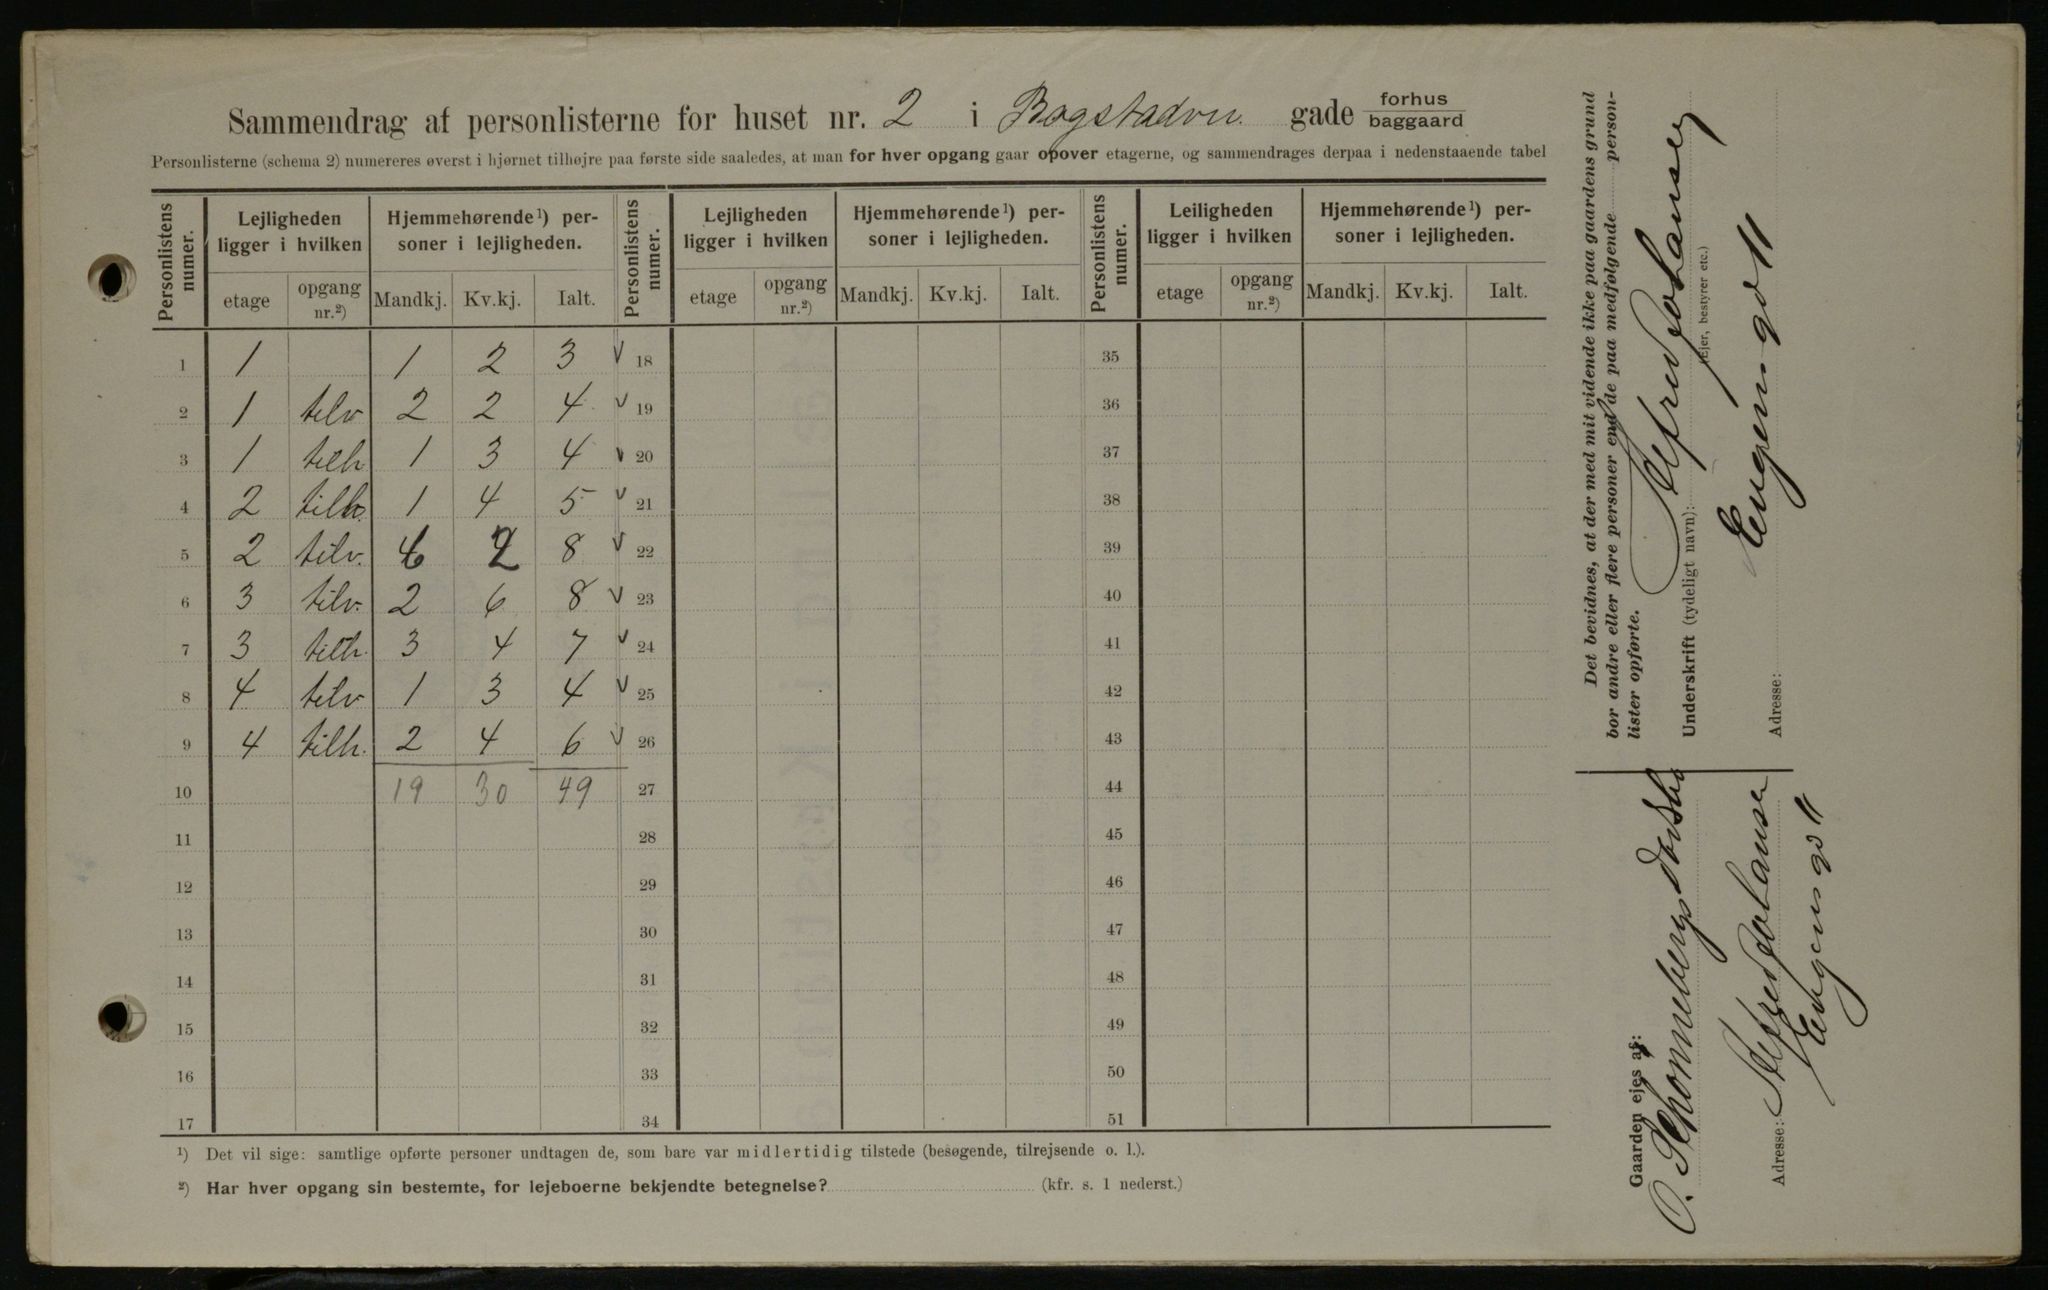 Sammendrag af personlisterne for huset nr. 2 i Bogstadvn. gade forhus
baggaard
Personlisterne (schema 2) numereres øverst i hjørnet tilhøjre paa første side saaledes, at man for hver opgang gaar opover etagerne, og sammendrages derpaa i nedenstaaende tabel
Personlistens numer. Lejligheden ligger i hvilken Hjemmehørende¹) personer i lejligheden. Personlistens numer. Lejligheden ligger i hvilken Hjemmehørende¹) personer i lejligheden. Personlistens numer. Leiligheden ligger i hvilken Hjemmehørende¹) personer i lejligheden.
etage opgang nr.²) Mandkj. Kv.kj. Ialt. etage opgang nr.²) Mandkj. Kv.kj. Ialt. etage opgang nr.²) Mandkj. Kv.kj. Ialt.
1 1 1 2 3 v 18 35
2 1 tilv 2 2 4 v 19 36
3 1 tilh 1 3 4 v 20 37
4 2 tilh. 1 4 5 v 21 38
5 2 tilv. 6 2 8 v 22 39
6 3 tilv. 2 6 8 v 23 40
7 3 tilh. 3 4 7 v 24 41
8 4 tilv 1 3 4 v 25 42
9 4 tilh. 2 4 6 v 26 43
10 19 30 49 27 44
11 28 45
12 29 46
13 30 47
14 31 48
15 32 49
16 33 50
17 34 51
¹) Det vil sige: samtlige opførte personer undtagen de, som bare var midlertidig tilstede (besøgende, tilrejsende o. l.).
²) Har hver opgang sin bestemte, for lejeboerne bekjendte betegnelse? (kfr. s. 1 nederst.)
Det bevidnes, at der med mit vidende ikke paa gaardens grund
bor andre eller flere personer end de paa medfølgende person-
lister opførte.
Underskrift (tydeligt navn): Alfred Johansen
(Ejer, bestyrer etc.)
Adresse: Eugensgd 11
Gaarden ejes af:
O. Schonnebergs Dødsbo
Adresse: Alfred Johansen
Eugensgd 11